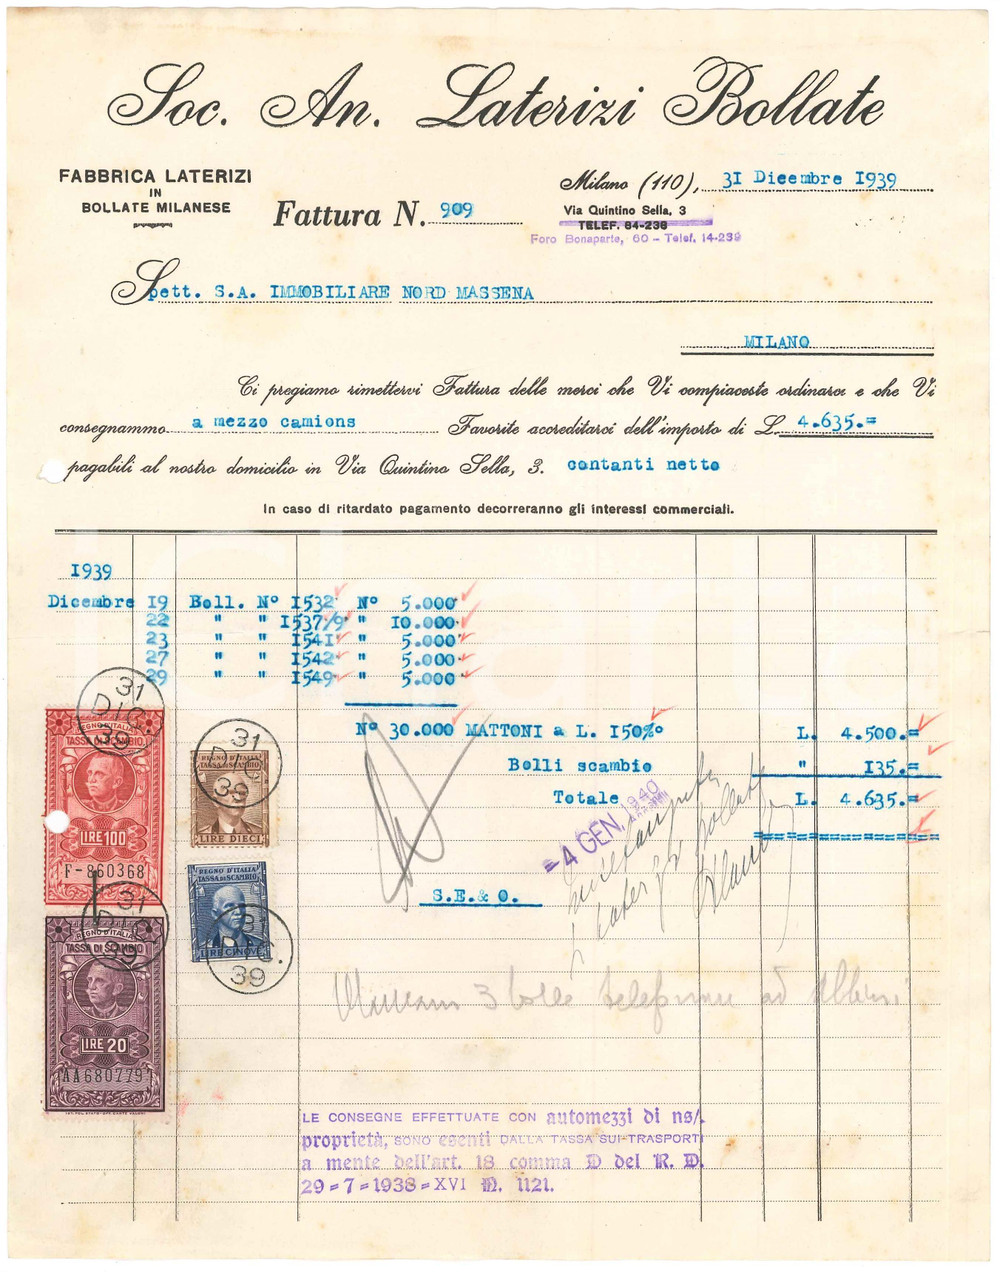 Soc. An. Laterizi Bollate
FABBRICA LATERIZI
IN
BOLLATE MILANESE
Fattura N. 909
Milano (110), 31 Dicembre 1939
Via Quintino Sella, 3
TELEF. 64-236
Foro Bonaparte, 60 - Telef. 14-239
Spett. S.A. IMMOBILIARE NORD MASSENA
MILANO
Ci pregiamo rimettervi Fattura delle merci che Vi compiaceste ordinarci e che Vi
consegnammo a mezzo camions Favorite accreditarci dell'importo di L. 4.635.=
pagabili al nostro domicilio in Via Quintino Sella, 3. contanti netto
In caso di ritardato pagamento decorreranno gli interessi commerciali.
1939
Dicembre 19 Boll. N° 1532 N° 5.000
22 " " 1537/9 " 10.000
23 " " 1541 " 5.000
27 " " 1542 " 5.000
29 " " 1549 " 5.000
N° 30.000 MATTONI a L. 150%o L. 4.500.=
Bolli scambio " 135.=
Totale L. 4.635.=
- 4 GEN. 1940
S.E.& O.
31
DIC.
39
REGNO D'ITALIA
TASSA DI SCAMBIO
LIRE 100
F-860368
31
DIC.
39
REGNO D'ITALIA
TASSA DI SCAMBIO
LIRE 20
AA680779
31
DIC.
39
REGNO D'ITALIA
TASSA DI SCAMBIO
LIRE DIECI
REGNO D'ITALIA
TASSA DI SCAMBIO
LIRE CINQUE
31
DIC.
39
Mancano 3 bolle telefonare ad
LE CONSEGNE EFFETTUATE CON automezzi di ns/.
proprietà, SONO esenti DALLA TASSA SUI TRASPORTI
a mente dell'art. 18 comma D del R. D.
29=7=1938=XVI N. 1121.